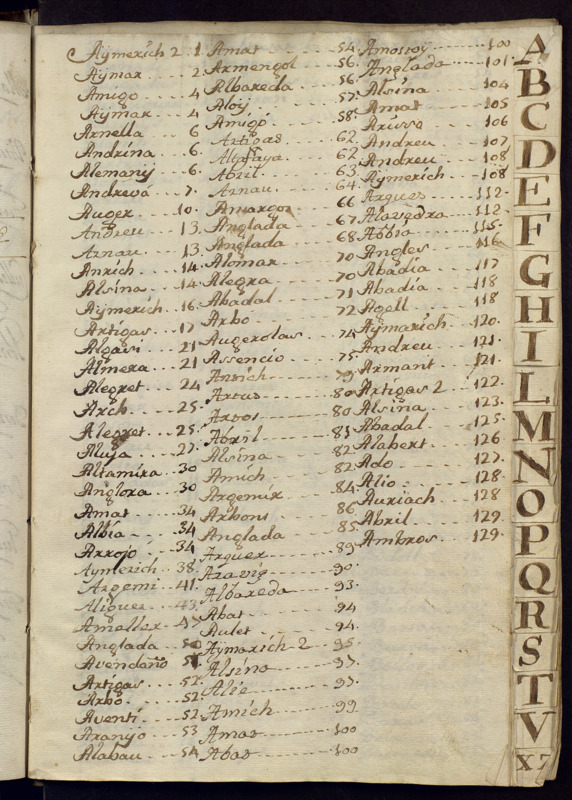 Aÿmerich 2 1
Aÿmar 2
Amigo 4
Aÿmar 4
Arnella 6
Andrina 6
Alemanÿ 6
Andrevá 7
Auger 10
Andreu 13
Arnau 13
Anrich 14
Alsina 14
Aÿmerich 16
Artigas 17
Algaisi 21
Almera 21
Alegret 24
Arch 25
Alegret 25
Aluja 27
Altamira 30
Anglora 30
Amat 34
Albia 34
Arrojó 34
Aymerich 38
Argemi 41
Aliguer 43
Ameller 47
Anglada 50
Avendaño 51
Artigas 52
Arbó 52
Aventi 52
Aranyó 53
Alabau 54
Amat 54
Armengol 56
Albareda 56
Aloÿ 57
Amigó 58
Artigas 62
Altafaya 62
Abril 63
Arnau 64
Amargos 66
Anglada 67
Anglada 68
Alomar 70
Alegra 70
Abadal 71
Arbo 72
Augerolas 74
Assencio 75
Anrich 79
Artus 80
Arbos 80
Abril 81
Alsina 82
Amich 82
Argemir 84
Arbons 86
Anglada 85
Arquer 89
Aravig 90
Albareda 93
Abat 94
Aulet 94
Aÿmarich 2 95
Alsina 97
Alié 97
Amich 99
Amat 100
Abat 100
Amoroÿ 100
Anglada 101
Alsina 104
Amat 105
Arusso 106
Andreu 107
Andreu 108
Aÿmerich 108
Argues 112
Alavedra 112
Abbia 115
Angles 116
Abadia 117
Abadia 118
Agell 118
Aÿmarich 120
Andreu 121
Armant 121
Artigas 2 122
Alsina 123
Abadal 125
Alabert 126
Ado 127
Alio 128
Auriach 128
Abril 129
Ambros 129
A
B
C
D
E
F
G
H
I
L
M
N
O
P
Q
R
S
T
V
X Z